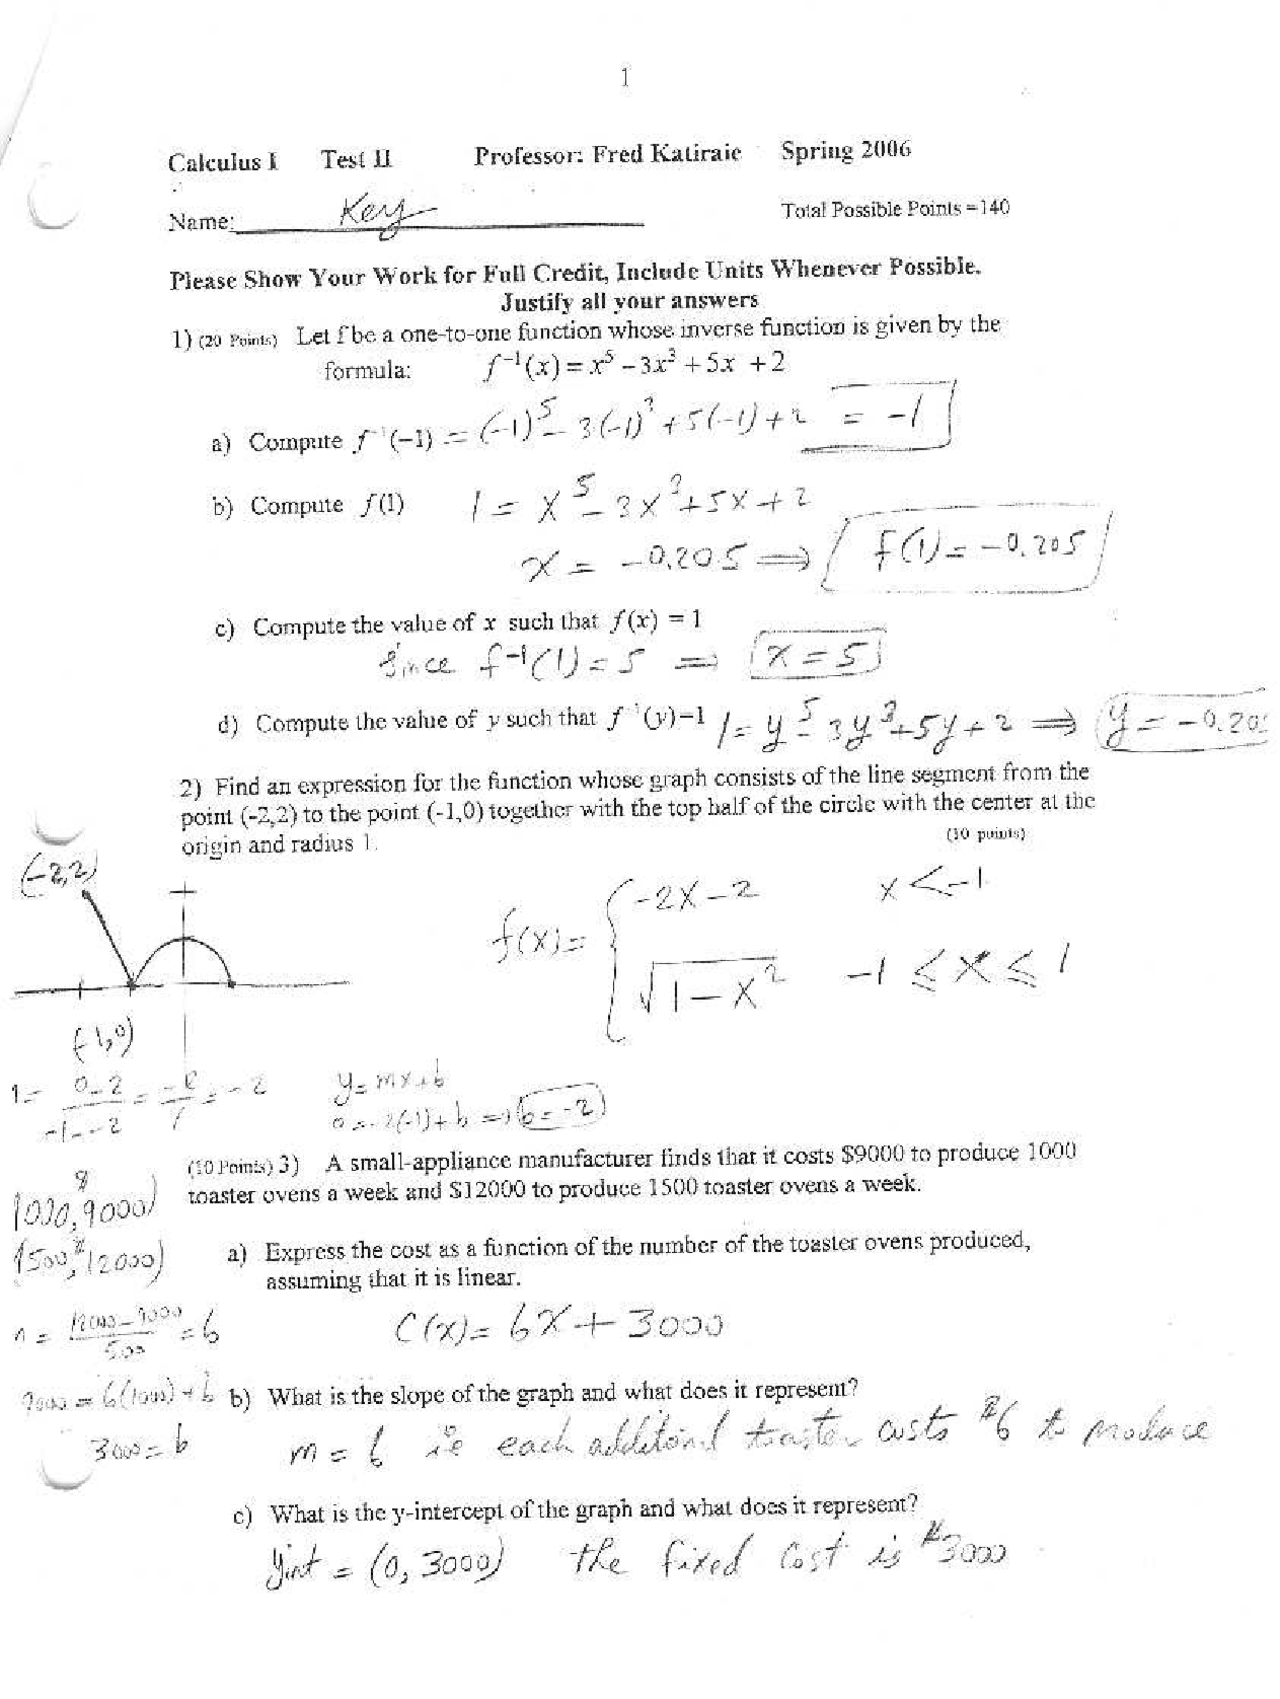 1
Calculus I Test II Professor: Fred Katiraie Spring 2006
Name: Key Total Possible Points = 140
Please Show Your Work for Full Credit, Include Units Whenever Possible.
Justify all your answers
1) (20 Points) Let f be a one-to-one function whose inverse function is given by the
formula: f⁻¹(x) = x⁵ − 3x³ + 5x + 2
a) Compute f⁻¹(−1) = (−1)⁵ − 3(−1)³ + 5(−1) + 2 = −1
b) Compute f(1) 1 = x⁵ − 3x³ + 5x + 2
x = −0.205 ⟹ f(1) = −0.205
c) Compute the value of x such that f(x) = 1
Since f⁻¹(1) = 5 ⟹ x = 5
d) Compute the value of y such that f⁻¹(y)=1 1 = y⁵ − 3y³ + 5y + 2 ⟹ y = −0.205
2) Find an expression for the function whose graph consists of the line segment from the
point (-2,2) to the point (-1,0) together with the top half of the circle with the center at the
origin and radius 1. (10 points)
(-2,2)
f(x) = { -2x-2 x < -1
√1-x² -1 ≤ x ≤ 1
(-1,0)
0-2 / -1--2 = -2/1 = -2 y = mx+b
0 = -2(-1)+b ⟹ b = -2
(10 Points) 3) A small-appliance manufacturer finds that it costs $9000 to produce 1000
toaster ovens a week and $12000 to produce 1500 toaster ovens a week.
(1000, $9000)
(1500, $12000)
a) Express the cost as a function of the number of the toaster ovens produced,
assuming that it is linear.
12000-9000 / 500 = 6 C(x) = 6x + 3000
9000 = 6(1000) + b b) What is the slope of the graph and what does it represent?
3000 = b m = 6 ie each additional toaster costs $6 to produce
c) What is the y-intercept of the graph and what does it represent?
yint = (0, 3000) the fixed cost is $3000